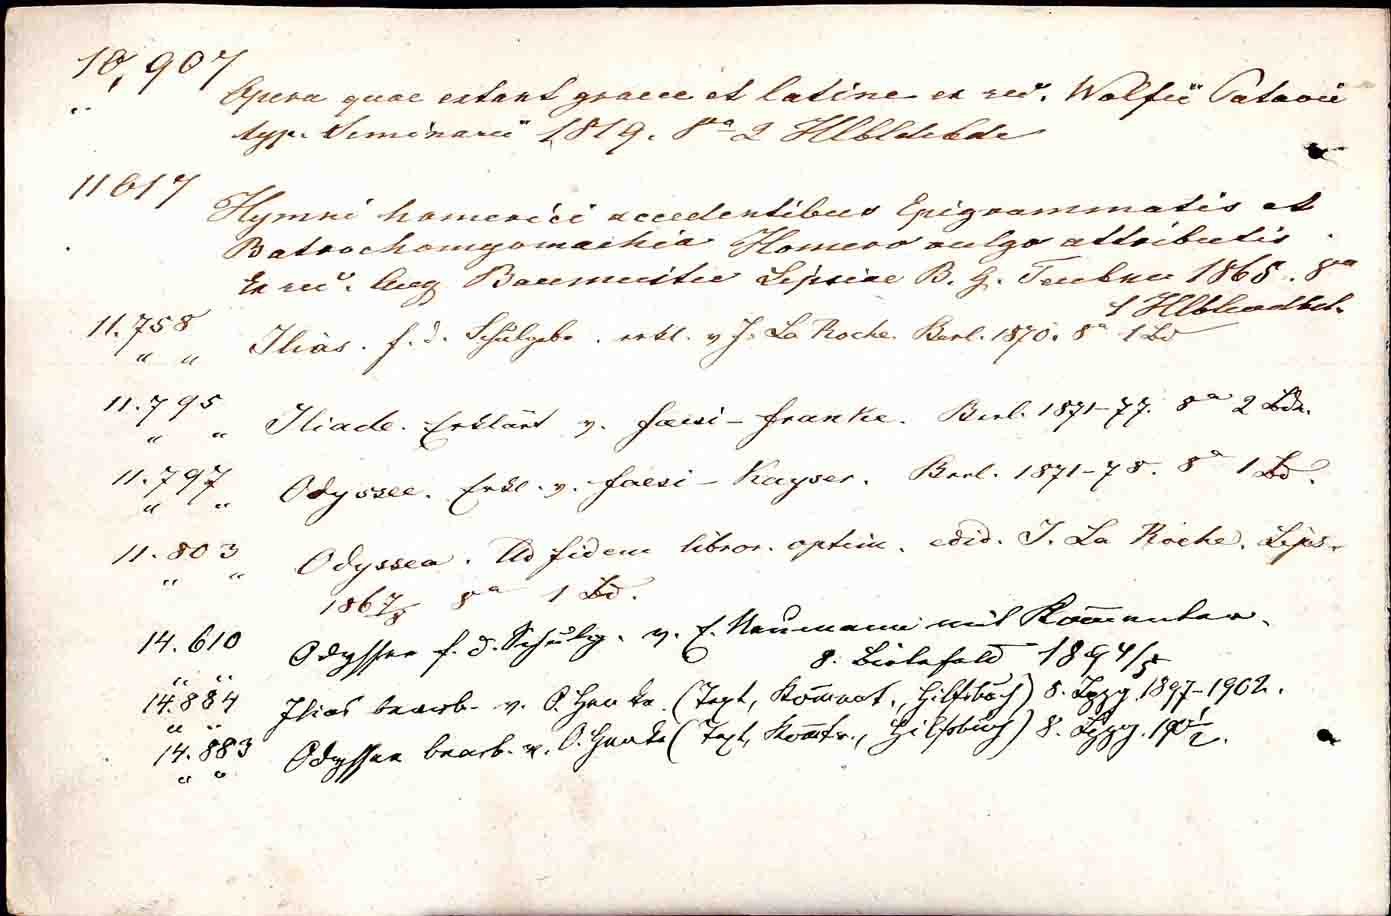 10,907
" Opera quae extant graece et latine ex rec. Wolfii Patavii
typ. Seminarii 1819. 8va 2 Hlbldrbde
11617
Hymni homerici accedentibus Epigrammatis et
Batrochomyomachia Homero vulgo attributis
Ex rec. Aug Baumeister Lipsiae B. G. Teubner 1865. 8va
1 Hlbleadbd.
11.758 Ilias. f. d. Schulgebr. erkl. v J. La Roche Berl. 1870. 8a 1 Bd
" "
11.795 Iliade. Erklärt v. faesi-franke. Berl. 1871-77. 8a 2 Bde.
" "
11.797 Odyssee. Erkl. v. faesi-Kayser. Berl. 1871-78. 8a 1 Bd.
" "
11.803 Odyssea. Ad fidem libror. optim. edid. J. La Roche. Lips.
" "
1867/8 8a 1 Bd.
14.610 Odyssee f. d. Schulg. v. E. Naumann mit Kommentar.
" " 8. Bielefeld 1894/5
14.884 Ilias bearb. v. O. Henke. (Text, Komment., Hilfsbuch) 8. Lpzg. 1897-1902.
" "
14.883 Odyssee bearb. v. O. Henke (Text, Komtr., Hilfsbuch) 8. Lpzg. 190½.
" "